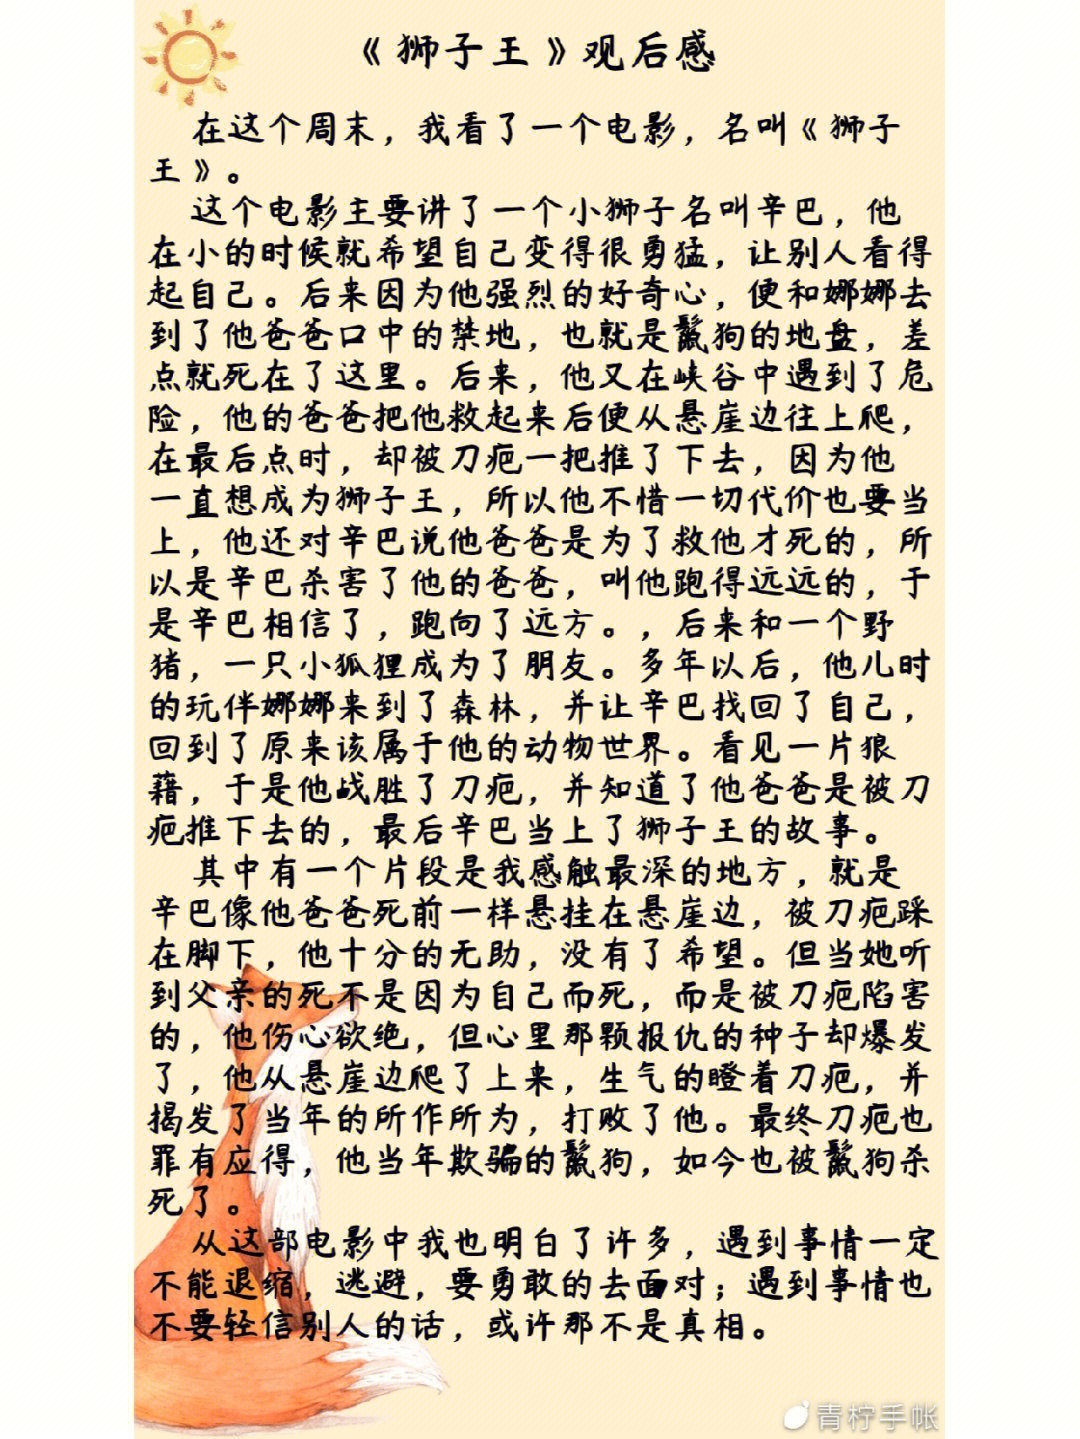 《狮子王》观后感
在这个周末，我看了一个电影，名叫《狮子
王》。
这个电影主要讲了一个小狮子名叫辛巴，他
在小的时候就希望自己变得很勇猛，让别人看得
起自己。后来因为他强烈的好奇心，便和娜娜去
到了他爸爸口中的禁地，也就是鬣狗的地盘，差
点就死在了这里。后来，他又在峡谷中遇到了危
险，他的爸爸把他救起来后便从悬崖边往上爬，
在最后点时，却被刀疤一把推了下去，因为他
一直想成为狮子王，所以他不惜一切代价也要当
上，他还对辛巴说他爸爸是为了救他才死的，所
以是辛巴杀害了他的爸爸，叫他跑得远远的，于
是辛巴相信了，跑向了远方。，后来和一个野
猪，一只小狐狸成为了朋友。多年以后，他儿时
的玩伴娜娜来到了森林，并让辛巴找回了自己，
回到了原来该属于他的动物世界。看见一片狼
藉，于是他战胜了刀疤，并知道了他爸爸是被刀
疤推下去的，最后辛巴当上了狮子王的故事。
其中有一个片段是我感触最深的地方，就是
辛巴像他爸爸死前一样悬挂在悬崖边，被刀疤踩
在脚下，他十分的无助，没有了希望。但当她听
到父亲的死不是因为自己而死，而是被刀疤陷害
的，他伤心欲绝，但心里那颗报仇的种子却爆发
了，他从悬崖边爬了上来，生气的瞪着刀疤，并
揭发了当年的所作所为，打败了他。最终刀疤也
罪有应得，他当年欺骗的鬣狗，如今也被鬣狗杀
死了。
从这部电影中我也明白了许多，遇到事情一定
不能退缩，逃避，要勇敢的去面对；遇到事情也
不要轻信别人的话，或许那不是真相。
青柠手帐